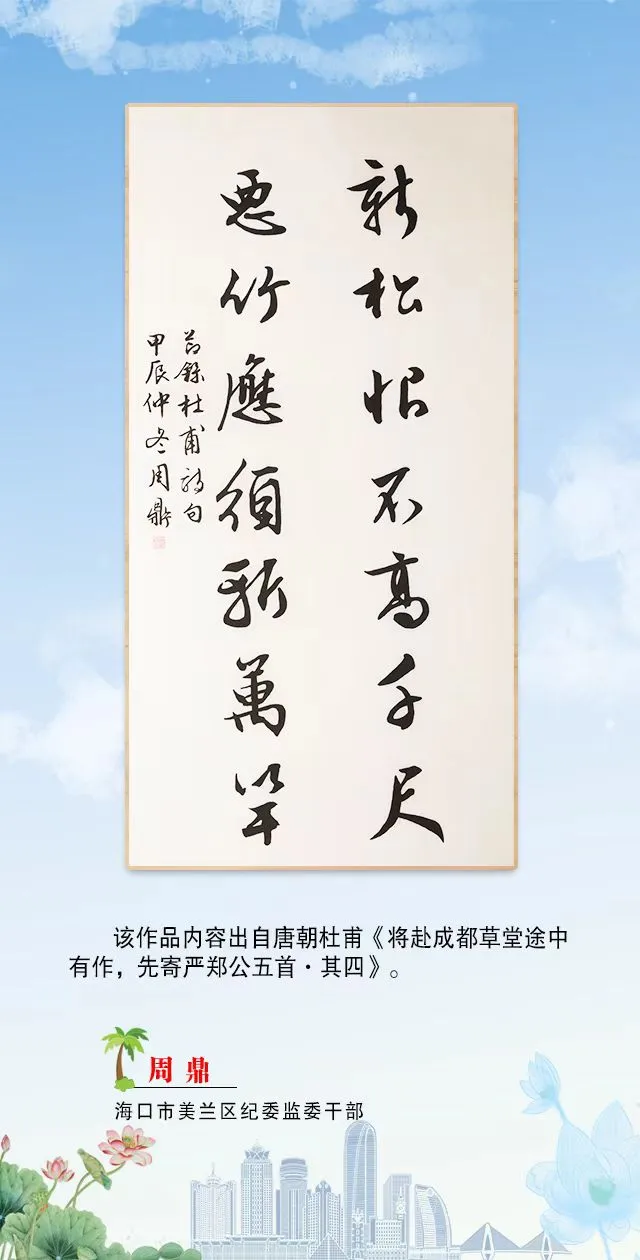 新松恨不高千尺
惡竹應須斬萬竿
节錄杜甫詩句
甲辰仲冬周鼎
该作品内容出自唐朝杜甫《将赴成都草堂途中
有作，先寄严郑公五首·其四》。
周鼎
海口市美兰区纪委监委干部